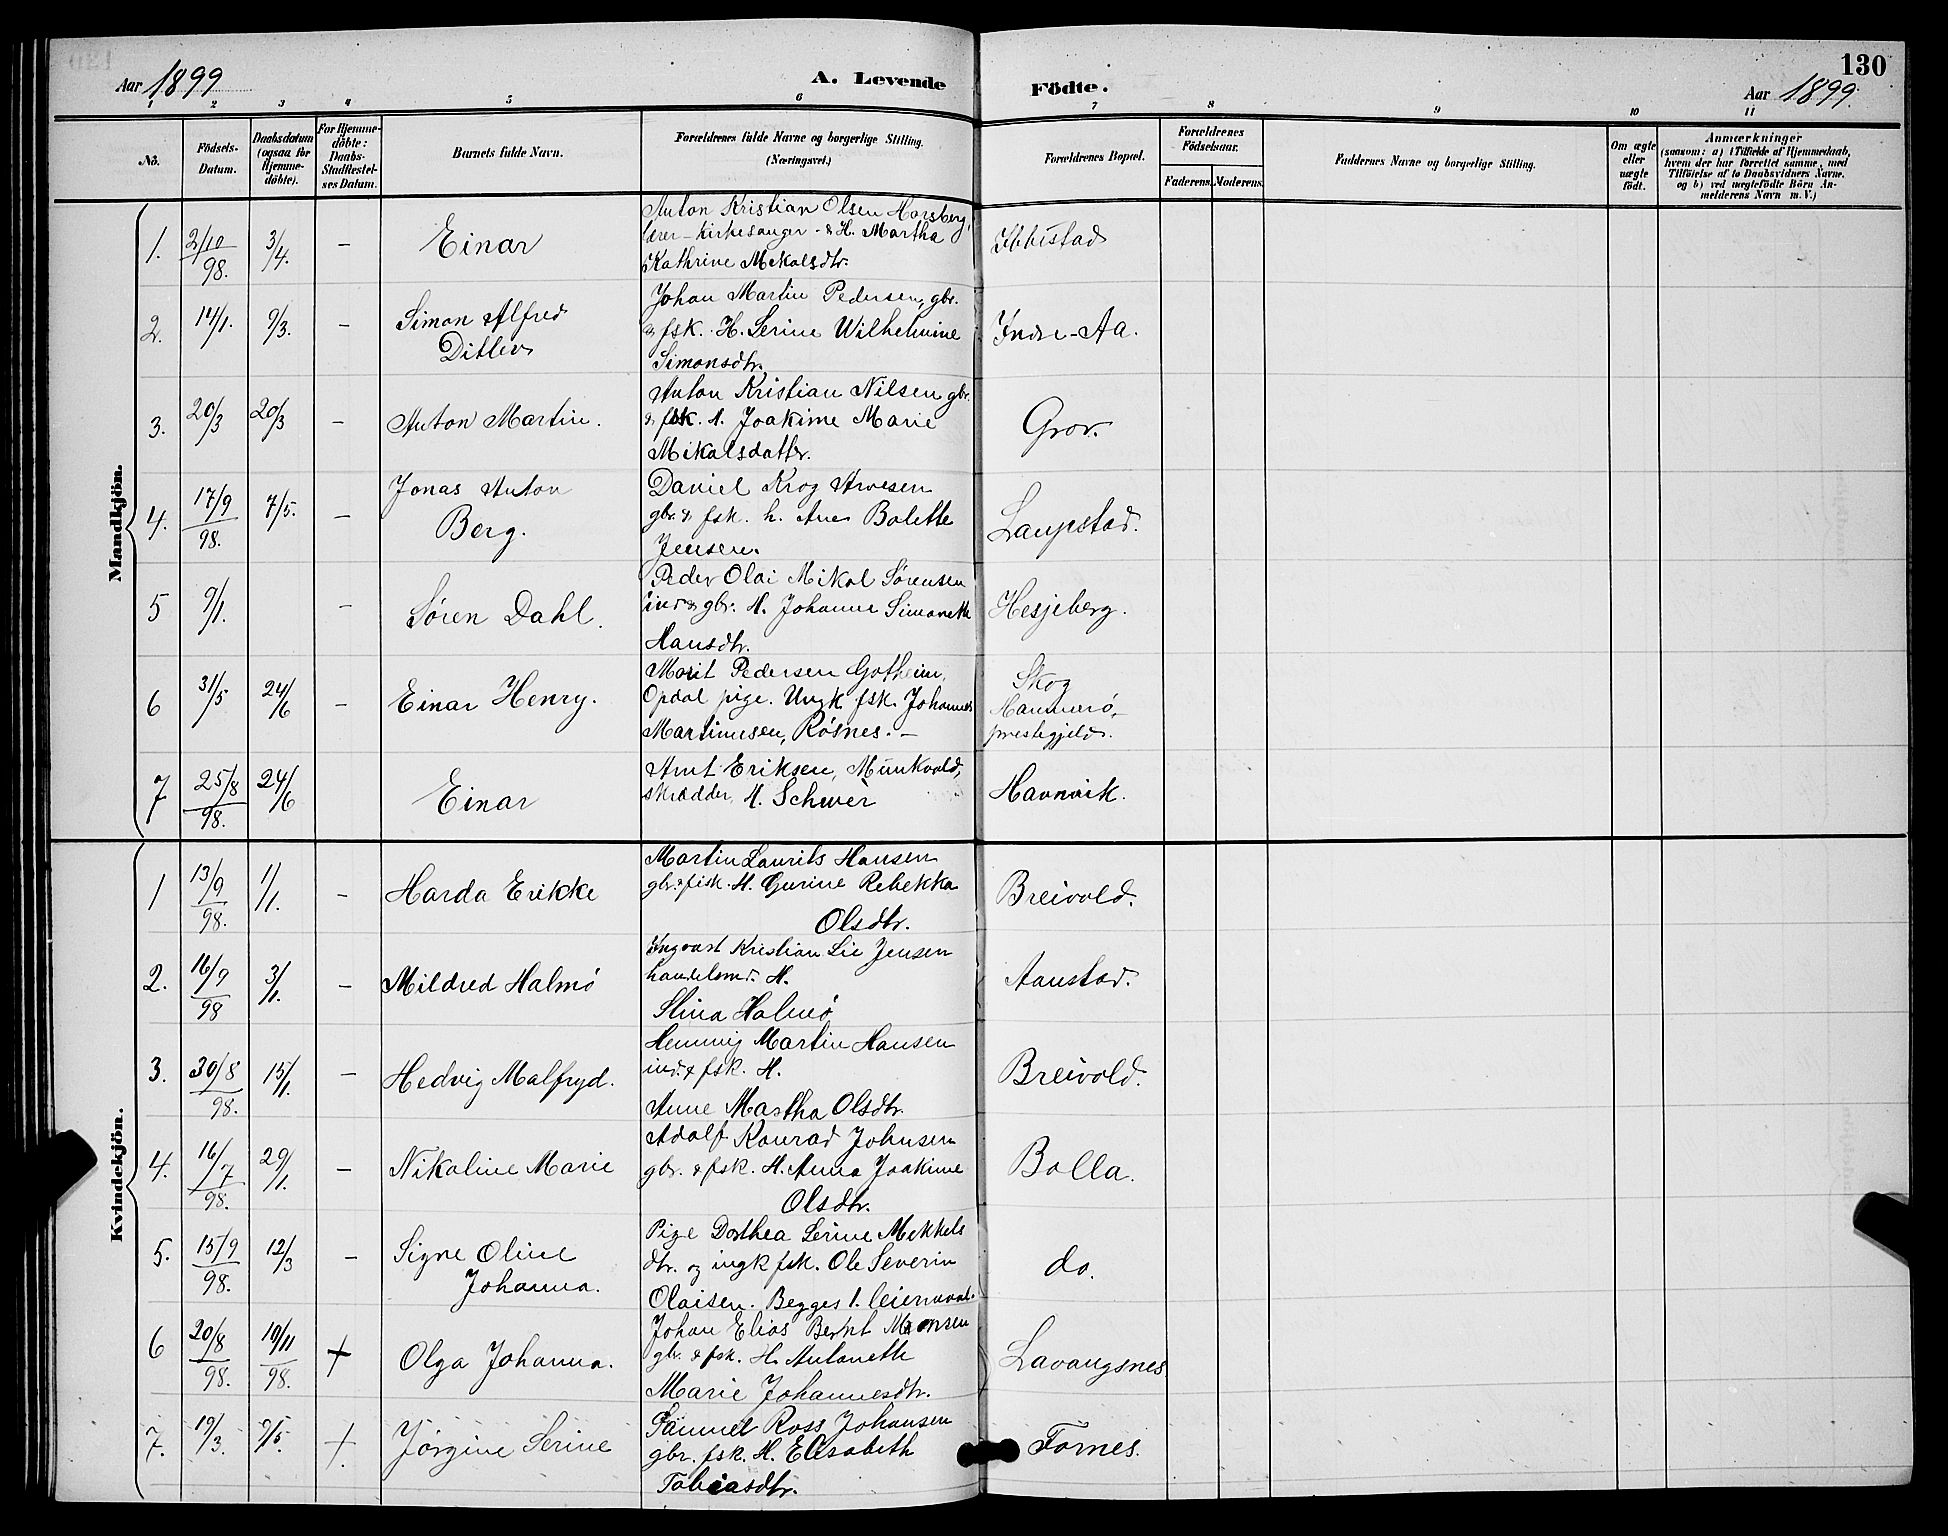 130
Aar 1899
A. Levende Födte.
Aar 1899.
1 2 3 4 5 6 7 8 9 10 11
No.
Födsels-
Datum.
Daabsdatum
(ogsaa for
Hjemme-
döbte).
For Hjemme-
döbte:
Daabs-
Stadfæstel-
ses Datum.
Barnets fulde Navn.
Forældrenes fulde Navne og borgerlige Stilling.
(Næringsvei.)
Forældrenes Bopæl.
Forældrenes
Födselsaar.
Faderens. Moderens.
Faddernes Navne og borgerlige Stilling.
Om ægte
eller
uægte
födt.
Anmærkninger
(saasom: a) i Tilfælde af Hjemmedaab,
hvem der har forrettet samme, med
Tilföielse af to Daabsvidners Navne.
og b) ved uægtefödte Börn An-
melderens Navn m. V.)
Mandkjön.
1. 2/10 98. 3/4. – Einar
Anton Kristian Olsen Horsberg,
lærer – kirkesanger – & H. Martha
Kathrine Mikalsdtr.
Ibbestad
2. 14/1. 9/3. – Simon Alfred
Ditlev
Johan Martin Pedersen, gbr.
& fsk. H. Serine Wilhelmine
Simonsdtr.
Indre-Aa.
3. 20/3 20/3 – Anton Martin.
Anton Kristian Nilsen gbr.
& fsk. H. Joakime Marie
Mikalsdatter.
Grov.
4. 17/9 98. 7/5. – Jonas Anton
Berg.
Daniel Krog Arnesen
gbr. & fsk. h. Ane Bolette
Jensen.
Laupstad.
5 9/1. – Søren Dahl.
Peder Olai Mikal Sørensen
ind. & gbr. H. Johanne Simonette
Hansdtr.
Hesjeberg.
6 31/5 24/6 – Einar Henry.
Marit Pedersen Gotheim,
Opdal pige. Ungk. fsk. Johannes
Martinusen, Røsnes. –
Skog
Hammerö,
prestegjeld.
7 25/8 98. 24/6 Einar
Arnt Eriksen, Munkvold,
skrædder, H. Schwer
Havnvik.
Kvindekjön.
1 13/9 98. 1/1. – Harda Erikke
Martin Laurits Hansen
gbr. & fisk. H. Gurine Rebekka
Olsdtr.
Breivold.
2. 16/9 98 3/1. – Mildred Halmö
Ingvart Kristian Lie Jensen
handelsmd. H.
Stina Halmö
Aanstad.
3. 30/8 98. 15/1. – Hedvig Malfryd.
Hemmig Martin Hansen
ind. & fsk. H.
Anne Martha Olsdtr.
Breivold.
4. 16/7 98. 29/1. – Nikoline Marie
Adolf Konrad Johnsen
gbr. & fsk. H. Anna Joakime
Olsdtr.
Bolla.
5. 15/9 98. 12/3 – Signe Oline
Johanna.
Pige Dorthea Serine Mekkels
dtr. og ungk. fsk. Ole Severin
Olaisen. Begges 1. leiermaal.
do.
6 20/8 98. 19/11 98. + Olga Johanna.
Johan Elias Bernt Monsen
gbr. & fsk. H. Antonette
Marie Johannesdtr.
Lavangsnes
7. 19/3. 9/5. + Jørgine Serine
Samuel Ross Johansen
gbr. fsk. H. Elisabeth
Tobiasdtr.
Fornes.